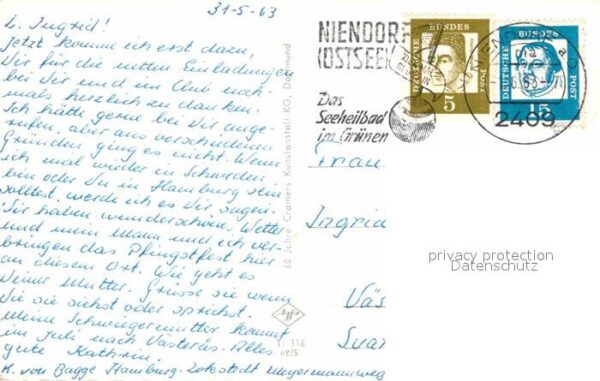 31-5-63
L. Ingrid!
Jetzt komme ich erst dazu,
Dir für die netten Einladungen
bei Dir und im Club noch-
mals herzlich zu danken.
Ich hätte gerne bei Dir ange-
rufen, aber aus verschiedenen
Gründen ging es nicht. Wenn
ich mal wieder in Schweden
bin oder Du in Hamburg sein
solltest, werde ich es Dir sagen.
Wir haben wunderschönes Wetter
und mein Mann und ich ver-
bringen das Pfingstfest hier
an diesem Ort. Wie geht es
Deiner Mutter. Grüsse sie wenn
Du sie siehst oder sprichst.
Meine Schwiegermutter kommt
im Juli nach Västerås. Alles
gute Kathrin.
K. von Bagge Hamburg-Lokstedt Meyermannweg
60 Jahre Cramers Kunstanstalt KG, Dortmund
NIENDORF
(OSTSEE
Das
Seeheilbad
im Grünen
DEUTSCHE BUNDES POST
5
DEUTSCHE BUNDES POST
15
2409
Frau
Ingrid
Väs
Svar
privacy protection
Datenschutz
116
62/5